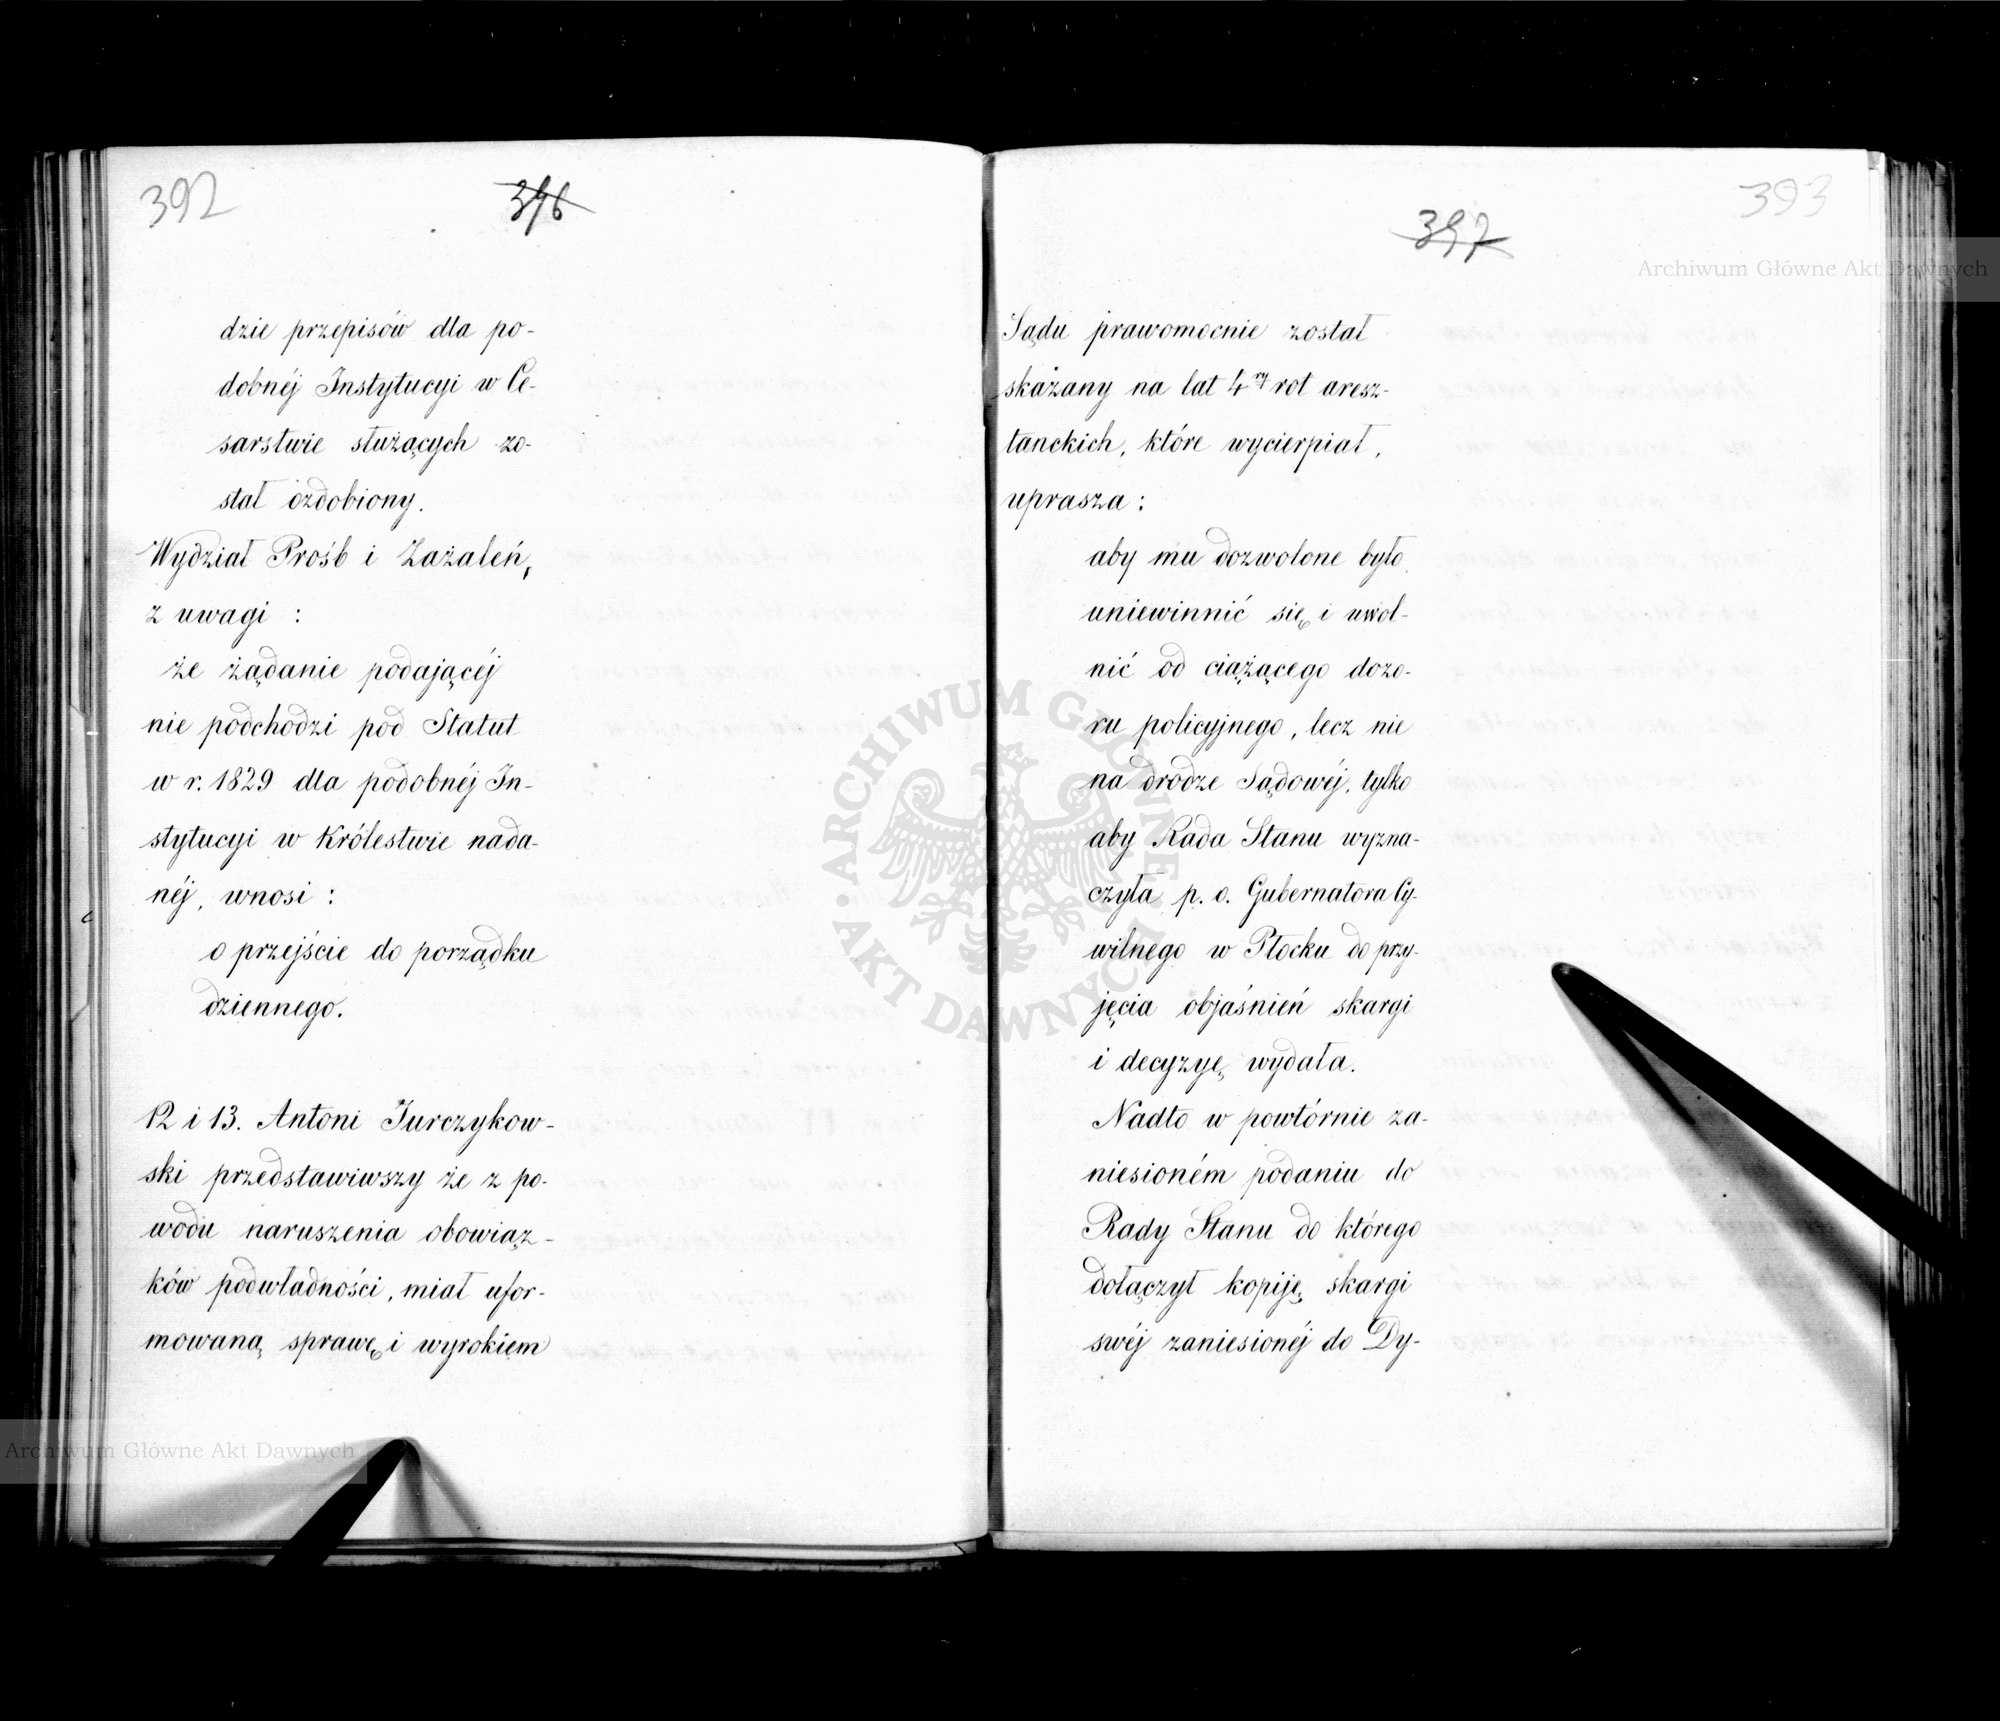 392
396
dzie przepisów dla po-
dobnéj Instytucyi w Ce-
sarstwie służących zo-
stał ozdobiony.
Wydział Prośb i Zażaleń,
z uwagi :
że żądanie podającéj
nie podchodzi pod Statut
w r. 1829 dla podobnéj In-
stytucyi w Królestwie nada-
néj, wnosi :
o przejście do porządku
dziennego.
12 i 13. Antoni Jurczykow-
ski przedstawiwszy że z po-
wodu naruszenia obowiąz-
ków podwładności, miał ufor-
mowaną sprawę i wyrokiem
393
397
Sądu prawomocnie został
skazany na lat 4ry rot aresz-
tanckich, które wycierpiał,
uprasza :
aby mu dozwolone było
uniewinnić się i uwol-
nić od ciążącego dozo-
ru policyjnego, lecz nie
na drodze Sądowéj, tylko
aby Rada Stanu wyzna-
czyła p. o. Gubernatora Cy-
wilnego w Płocku do przy-
jęcia objaśnień skargi
i decyzyę wydała.
Nadto w powtórnie za-
niesioném podaniu do
Rady Stanu do którego
dołączył kopiję skargi
swéj zaniesionéj do Dy-
Archiwum Główne Akt Dawnych
Archiwum Główne Akt Dawnych
ARCHIWUM GŁÓWNE AKT DAWNYCH